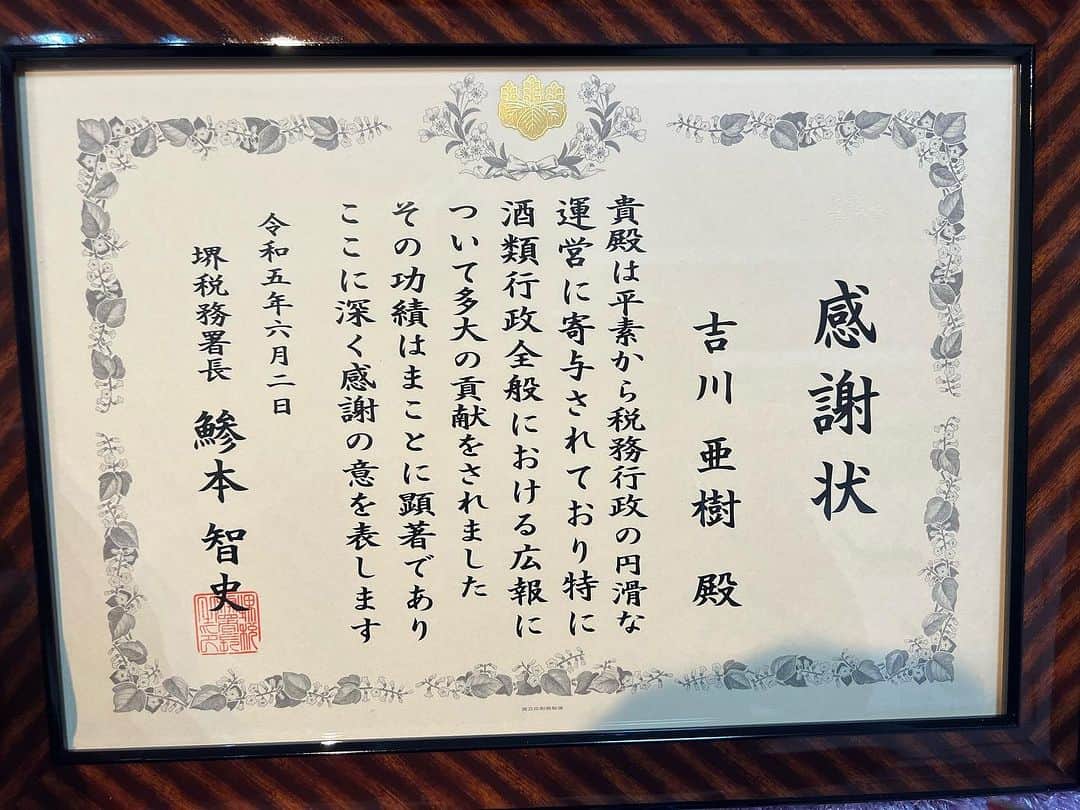 感謝状
吉川亜樹 殿
貴殿は平素から税務行政の円滑な
運営に寄与されており特に
酒類行政全般における広報に
ついて多大の貢献をされました
その功績はまことに顕著であり
ここに深く感謝の意を表します
令和五年六月二日
堺税務署長 鯵本智史